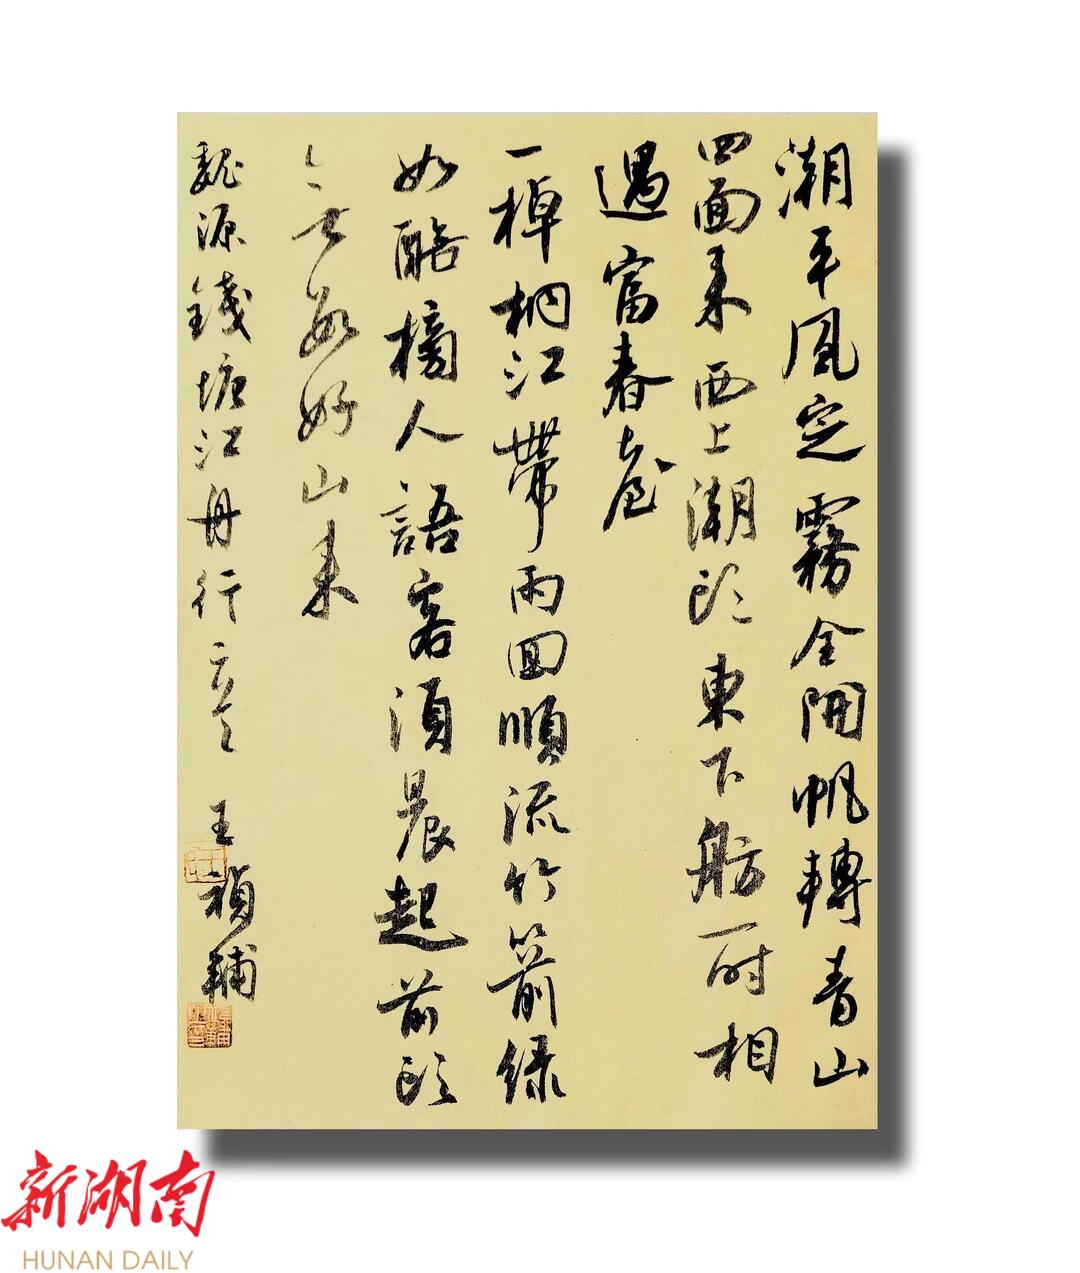 潮平風定霧全開帆轉青山
四面来西上潮頭東下舫一時相
遇富春臺
一棹桐江帶雨回順流竹箭緑
如醅榜人語客須晨起前頭
無數好山来
魏源錢塘江舟行 王禎輔
新湖南
HUNAN DAILY